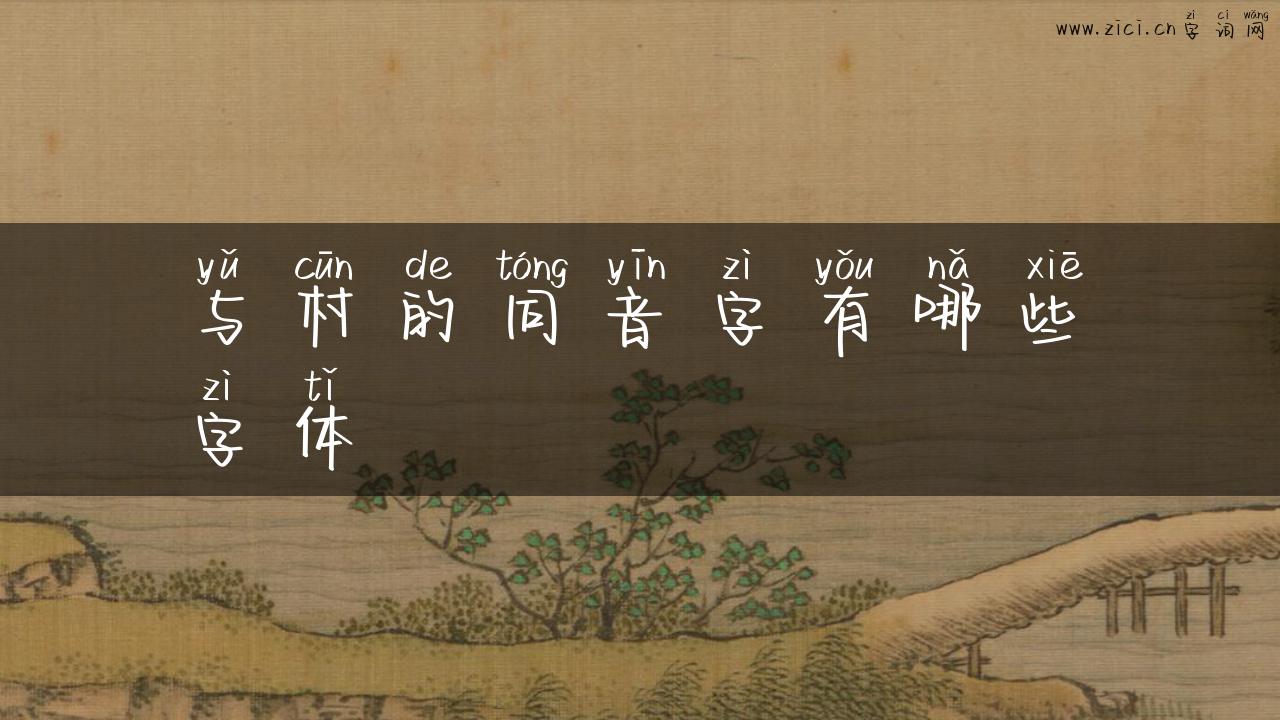 zì cí wǎng
www.zici.cn 字词网
yǔ cūn de tóng yīn zì yǒu nǎ xiē
与村的同音字有哪些
zì tǐ
字体